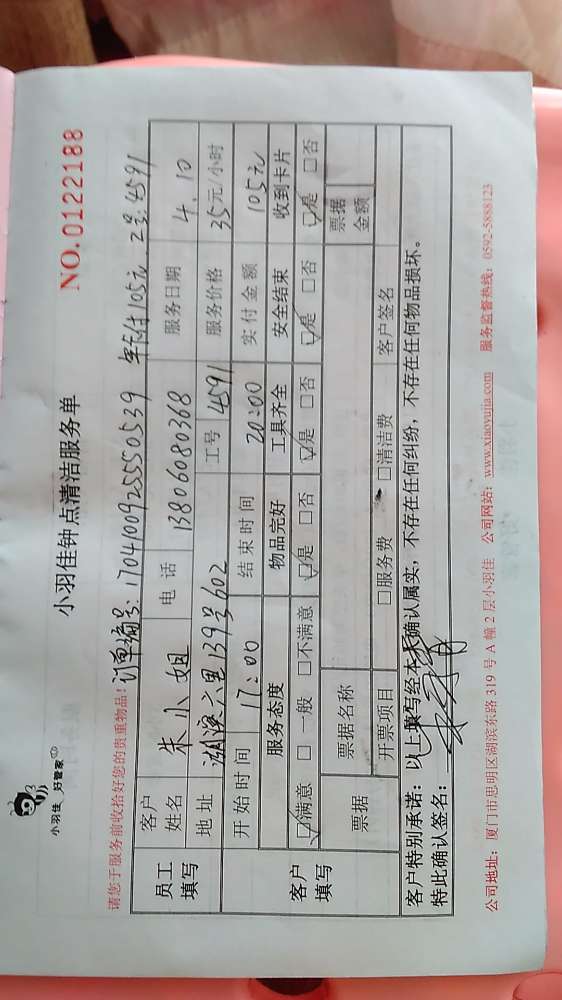 小羽佳 好管家
小羽佳钟点清洁服务单
NO.0122188
请您于服务前收拾好您的贵重物品! 订单编号: 1704100925550539 年卡付105元 工号:4591
员工填写 客户姓名 朱小姐 电话 13806080368 服务日期 4.10
地址 湖滨六里139号602 工号 4591 服务价格 35元/小时
开始时间 17:00 结束时间 20:00 实付金额 105元
客户填写 服务态度 物品完好 工具齐全 安全结束 收到卡片
☑满意 □一般 □不满意 ☑是 □否 ☑是 □否 ☑是 □否 ☑是 □否
票据 票据名称 票据金额
开票项目 □服务费 □清洁费 客户签名
客户特别承诺: 以上填写经本人确认属实,不存在任何纠纷,不存在任何物品损坏。
特此确认签名:
公司地址: 厦门市思明区湖滨东路 319 号 A 幢 2 层小羽佳 公司网站: www.xiaoyujia.com 服务监督热线: 0592-5888123